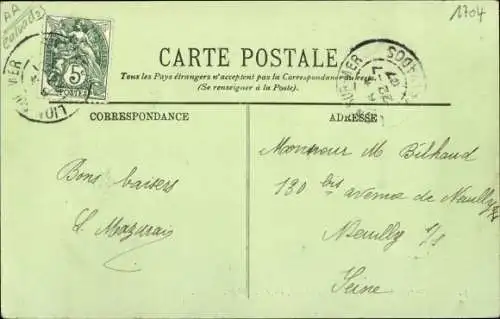 AA
Calvados
1704
5c
POSTES
CARTE POSTALE
Tous les Pays étrangers n'acceptent pas la Correspondance au recto.
(Se renseigner à la Poste).
CORRESPONDANCE
ADRESSE
Bons baisers
Monsieur M Bilhaud
130 bis avenue de Neuilly
Neuilly s/s
Seine